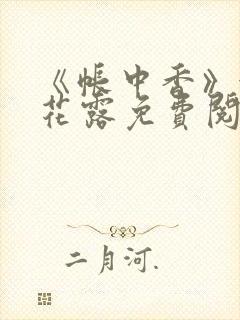 《帐中香》
花露免费阅
二月河.